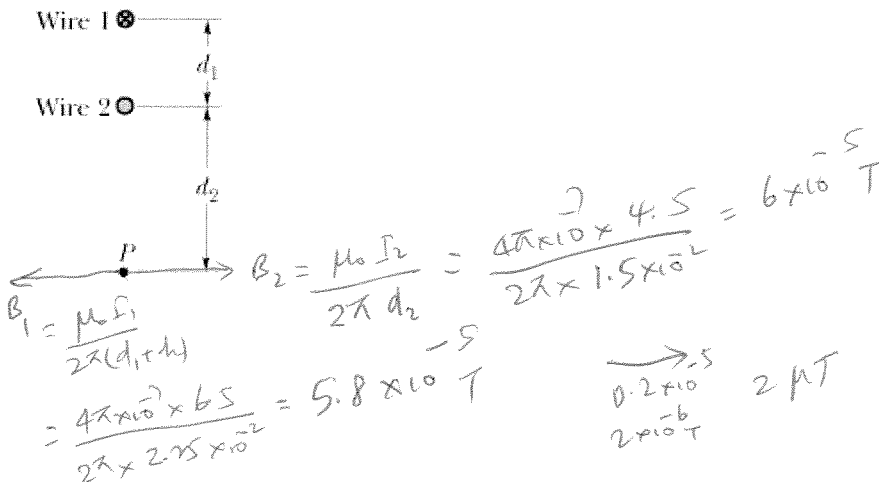 Wire 1
d₁
Wire 2
d₂
P
B₂ = μ₀ I₂ / 2π d₂ = 4π×10⁻⁷ × 4.5 / 2π × 1.5×10⁻² = 6×10⁻⁵ T
B₁ = μ₀ I₁ / 2π(d₁+d₂)
= 4π×10⁻⁷ × 6.5 / 2π × 2.25×10⁻² = 5.8×10⁻⁵ T
0.2×10⁻⁵
2×10⁻⁶ T
2 μT